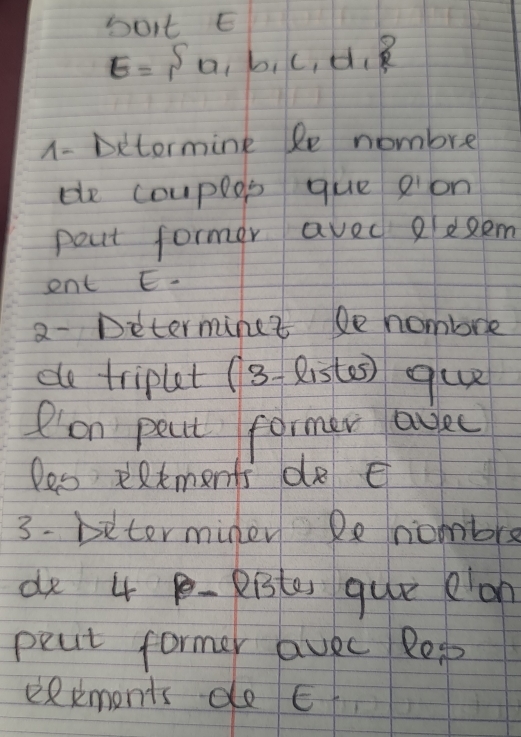 Soit E
E = { a, b, c, d, }
1- Determine le nombre
de couples que l'on
peut former avec l'elem
ent E.
2- Determinez le nombre
de triplet (3-listes) que
l'on peut former avec
les elements de E
3- Determiner le nombre
de 4 p-listes que l'on
peut former avec les
elements de E.